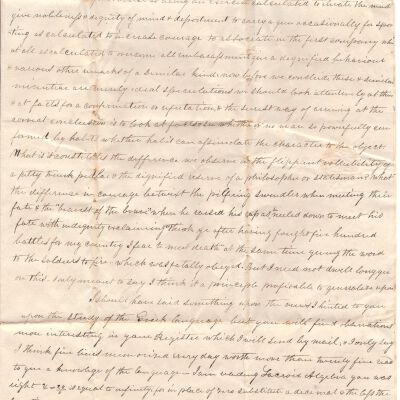 being an exercise calculated to elevate the mind
give nobleness & dignity of mind & deportment to carry a gun occasionally for sport
ing is calculated to increase courage to associate in the first company when
at all is calculated to overcome all embarrassment give a dignified behaviour
& various other remarks of a similar kind now before we conclude these & similar
minutiae are merely ideal speculations we should look attentively at them
& at facts for a confirmation or refutation, & the surest way of arriving at the
correct conclusion is to look at facts & see whether or no man is powerfully con
formed by habit & whether habit can assimilate the character to the object.
What is it constitutes the difference we observe in the flippant volubility of
a petty french & the dignified reserve of a philosopher or statesman & what
the difference in courage between the pilfering swindler when meeting their
fate & the "bravest of the brave" when he raised his kneeled down to meet his
fate with indignity exclaiming think ye after having fought five hundred
battles for my country I fear to meet death at the same time giving the word
to the soldiers to fire which was fatally obeyed. But I need not dwell longer
on this. I only meant to say I think it a principle profitable to speculate upon
I should have said something upon the views I hinted to you
upon the study of the Greek language but you will find observations
more interesting in your Register which I will send by mail, & I only say
I think five lines memorized every day worth more than twenty five read
to give a knowledge of the language — I am reading Lacroix Algebra you was
right is equal to infinity, for in place of zero substitute a decimal & the less the